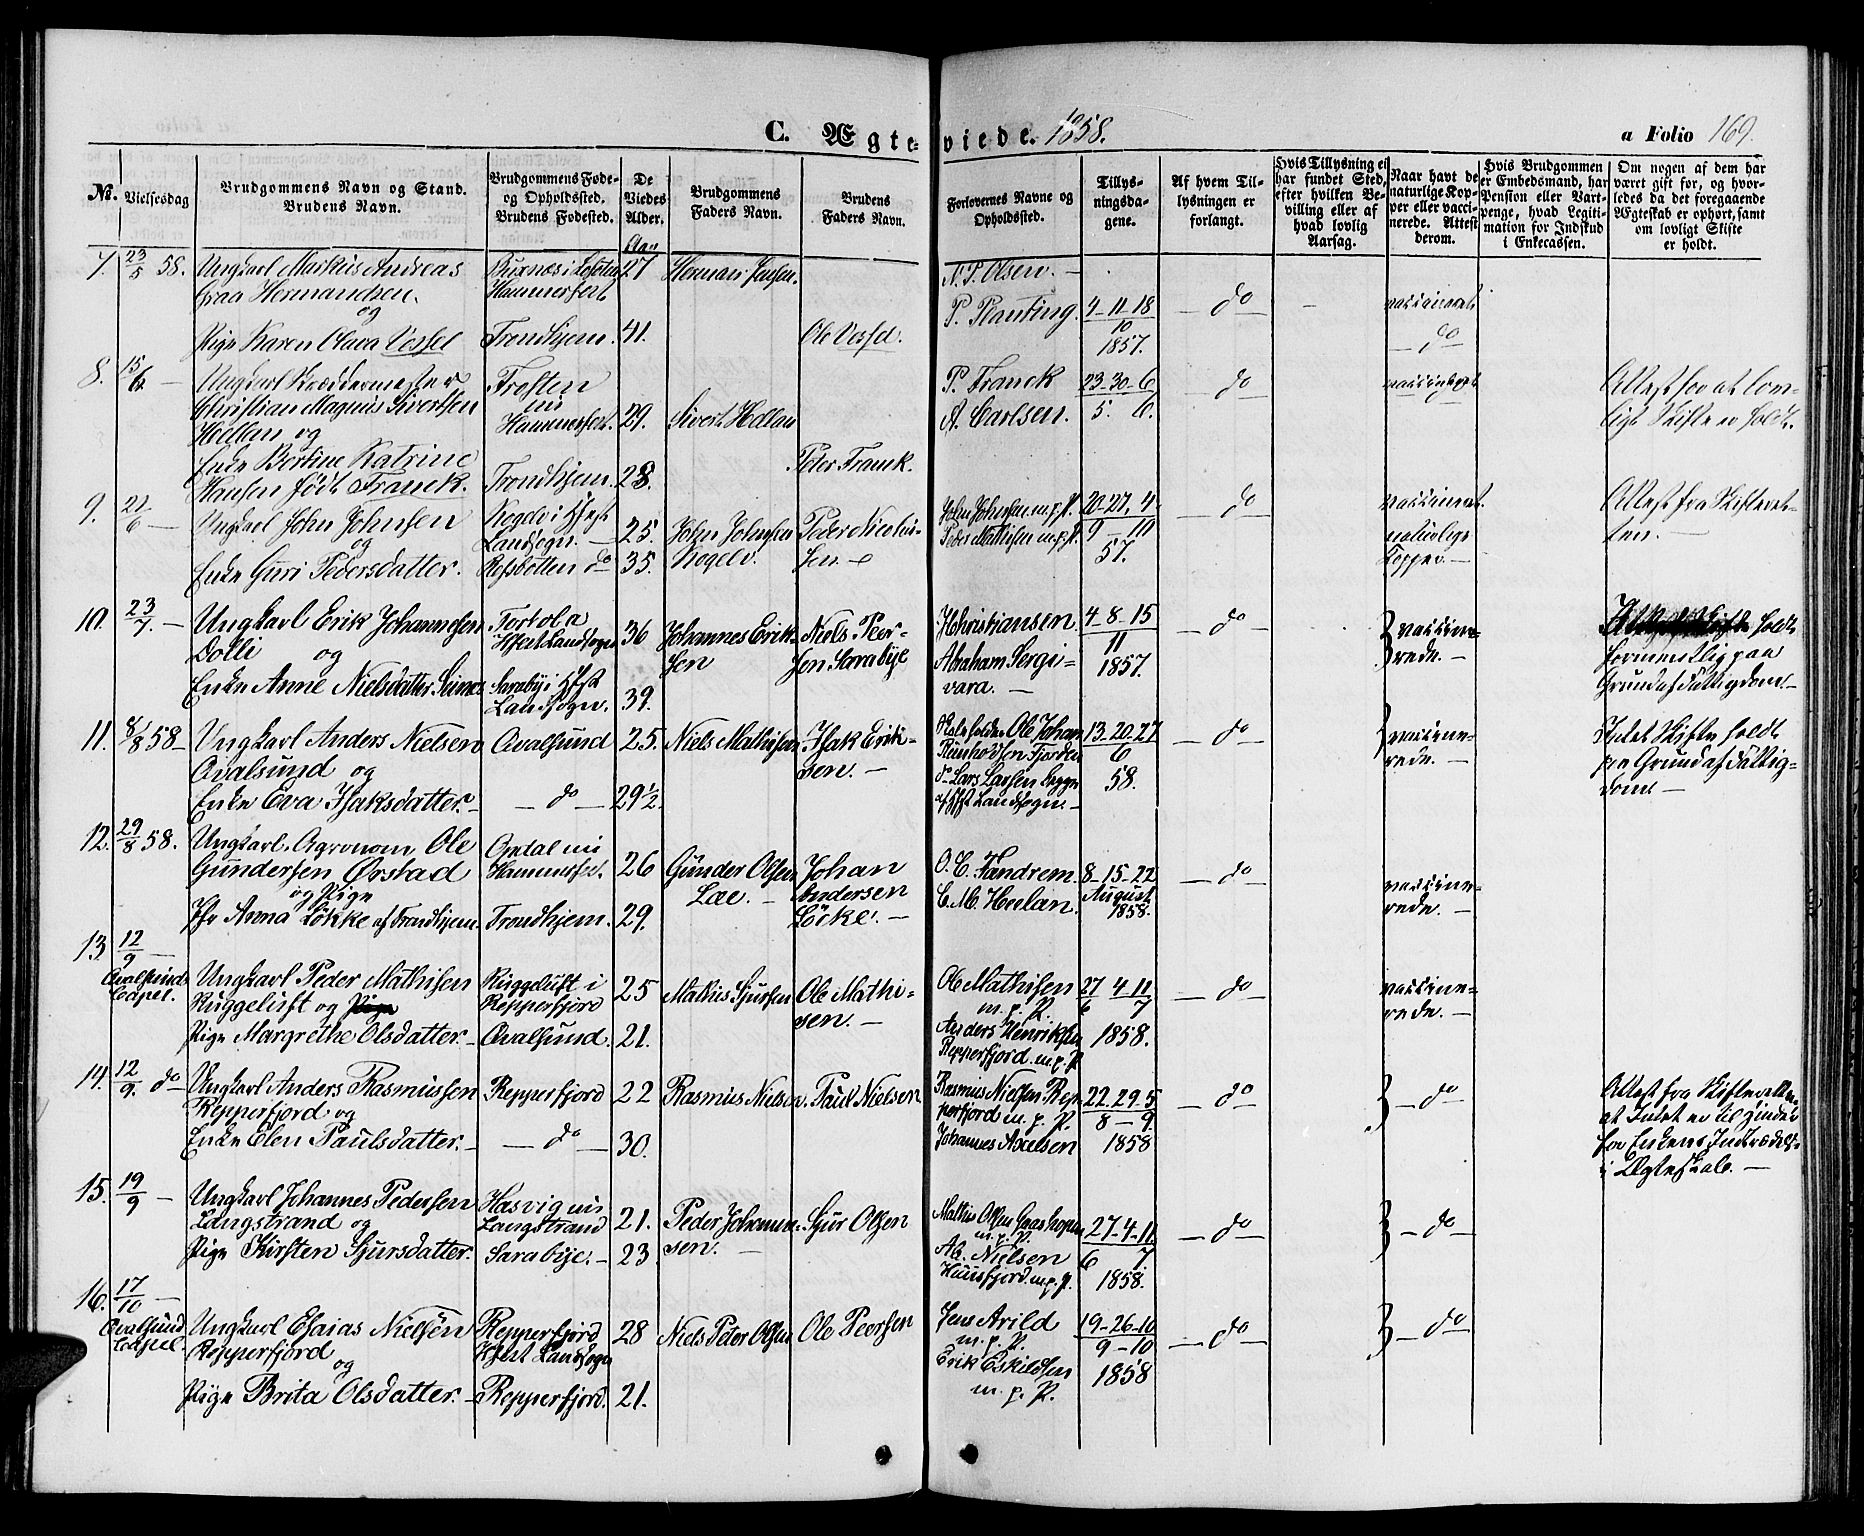 C. Ægteviede. 1858.
a Folio 169.
Nr.
Vielsesdag
Brudgommens Navn og Stand.
Brudens Navn.
Brudgommens Føde-
og Opholdssted.
Brudens Fødested.
De
Viedes
Alder.
Brudgommens
Faders Navn.
Brudens
Faders Navn.
Forlovernes Navne og
Opholdssted.
Tillys-
ningsda-
gene.
Af hvem Til-
lysningen er
forlangt.
Hvis Tillysning ei
har fundet Sted,
efter hvilken Be-
villing eller af
hvad lovlig
Aarsag.
Naar havt de
naturlige Kop-
per eller vacci-
nerede. Attest
derom.
Hvis Brudgommen
er Embedsmand, har
Pension eller Vart-
penge, hvad Legiti-
mation for Indskud
i Enkecassen.
Om nogen af dem har
været gift før, og hvor-
ledes da det foregaaende
Ægteskab er ophørt, samt
om lovligt Skifte
er holdt.
Aar
7. 23/5 58. Ungkarl Markus Andreas
Graa Hermandsen
og
Pige Karen Olava Vessel
Buxnæs i Lofoten
Hammerfest
Trondhjem.
27
41.
Herman Jensen.
Ole Vessel.
N. P. Olsen.
P. Planting.
4-11-18
10
1857.
do
vaccineret
do
8. 15/6 — Ungkarl Skræddermester
Christian Magnus Sivertsen
Hellan og
Enke Bertine Katrine
Hansen født Franck.
Frosten
nu
Hammerfest.
Trondhjem.
29.
28.
Sivert Hellan
Peter Franck.
P. Franck
A. Carlsen.
23-30-6
5. 6.
do
vaccineret
Attest for at lov-
ligt Skifte er holdt.
9. 27/6 — Ungkarl John Johnsen
og
Enke Guri Pedersdatter.
Kogelv i Hfest
Landsogn. —
Refsbotten do
25.
35.
John Johnsen
Kogelv.
Peder Nicolai-
sen.
John Johnsen m. p. P.
Peder Mathisen m. p. P.
20-27, 4
9 — 10
57.
do
vaccineret
naturlige
Kopper. —
Attest fra Skifteret-
ten.
10. 23/7. — Ungkarl Erik Johannesen
Dolli og
Enke Anne Nielsdatter
Hfest Landsogn
Sarabÿ i Hfst
Landsogn.
36
39.
Johannes Erik-
sen
Niels Peer-
sen Sarabÿe
H Christiansen
Abraham Sergi-
vara. —
4-8-15
11
1857.
do
vaccine-
rede. —
holdt
formentlig paa
Grund af Fattigdom. —
11. 8/8 58 — Ungkarl Anders Nielsen
Qvalsund og
Enke Eva Isaksdatter. —
Qvalsund
— do —
25.
29 1/2.
Niels Mathisen
Isak Erik-
sen. —
Ole Johan
Fjorden
Lars Larsen begge
af Hfst Landsogn. —
13-20-27
6
58.
do
vaccine-
rede. —
Intet Skifte holdt
paa Grund af Fattig-
dom. —
12. 29/8 58. Ungkarl Agronom Ole
Gundersen Ørstad
og Pige
Jfr Anna Løkke af Trondhjem.
Opdal nu
Hammerfest.
Trondhjem.
26
29.
Gunder Olsen
Lae. —
Johan
Andersen
Löcke. —
O. C. Fandrem.
C. M. Heelan.
8-15-22
August
1858.
do
vaccine-
rede. —
13. 12/9 —
Qvalsunds
Capel.
Ungkarl Peder Mathisen
Ruggeluft og
Pige Margrethe Olsdatter. —
Ruggeluft i
Repperfjord
Qvalsund.
25
21.
Mathis Sjursen
Ole Mathi-
sen. —
Ole Mathisen
m. p. P.
Anders Henriksen
Repperfjord. m. p. P
27 4 11
6 7
1858.
do
vaccine-
rede. —
14. 12/9. do Ungkarl Anders Rasmussen
Repperfjord og
Enke Elen Paulsdatter. —
Repperfjord
— do —
22
30.
Rasmus Nielsen.
Paul Nielsen
Rasmus Nielsen Rep-
perfjord m. p. P.
Johannes Axelsen
22 29 5
8 — 9.
1858
do
— do
Attest fra Skifteretten
at Intet er til Hinder
for Enkens Indtrædelse
i Ægteskab. —
15. 19/9 — Ungkarl Johannes Pedersen
Langstrand og
Pige Kirsten Sjursdatter.
Hasvig nu
Langstrand
Sarabÿe. —
21.
23
Peder Johannes-
sen. —
Sjur Olsen
Mathis Olsen
m. p. P.
Ab. Nielsen
m. p. P.
27-4-11
6 7
1858.
do
— do —
16. 17/10 —
Qvalsund
Capel.
Ungkarl Esaias Nielsen
Repperfjord
og
Pige Brita Olsdatter. —
Repperfjord
Hfest Landsogn
Repperfjord.
28
21.
Niels Peter Olsen
Ole Peersen
Jens Arild
m. p. P.
Erik Eskildsen
m. p. P.
19-26-10
9-10
1858
do
— do —